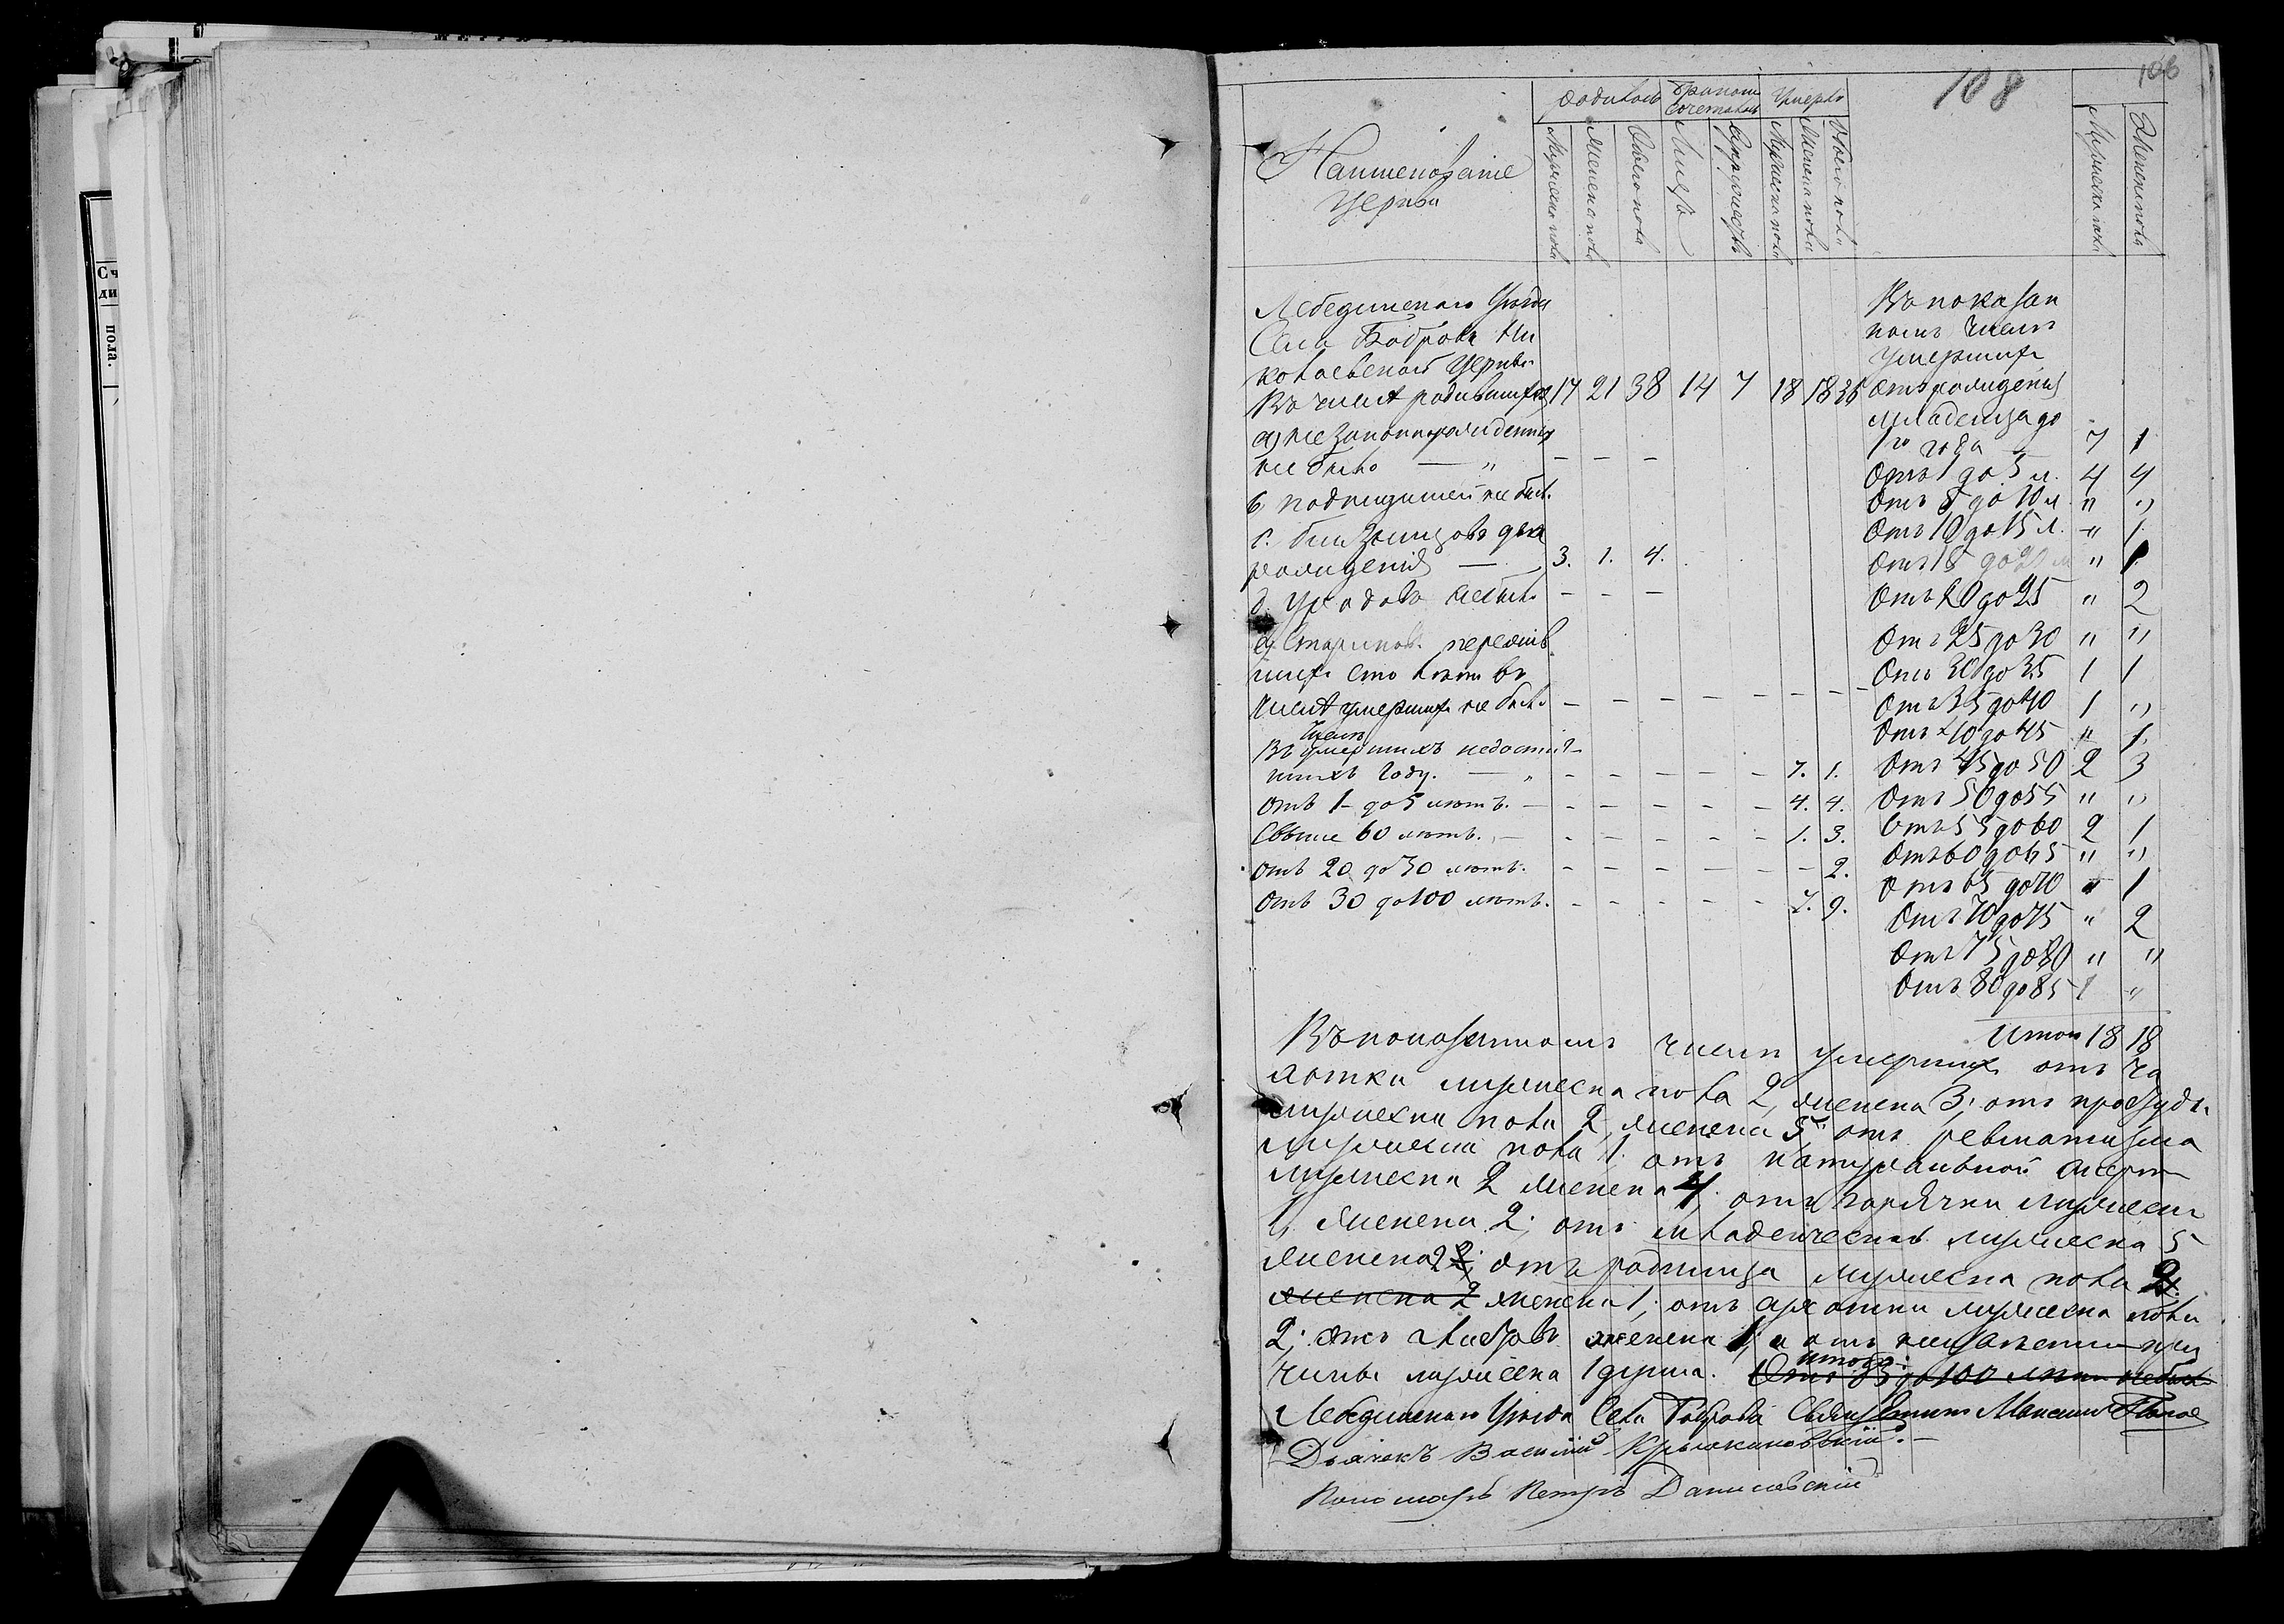 106
108
Родилось
Бракомъ Сочеталось
Умерло
Наименованіе
Церкви
Мужеска пола
Женска пола
Обоего пола
Лицъ
Супружествъ
Мужеска пола
Женска пола
Обоего пола
Мужеска пола
Женска пола
Лебединскаго Уѣзда
Села Боброва Ни
колаевской Церкви
Въ числѣ родившихся 17 21 38 14 7 18 18 36
а, не Законнорожденных
не было — " — — —
подкидышей не был.
с. близнецовъ два
рожденія — 3. 1. 4.
уродовъ небыло — — —
е, Стариковъ пережив
шихъ сто лѣтъ въ
числѣ умершихъ не было — — — — — — — —
Въ числѣ умершихъ недостиг-
шихъ году. — „ — — — — — 7. 1.
отъ 1 - до 5 лѣтъ. — — — — — — 4. 4.
Свыше 60 лѣтъ. — — — — — — 1. 3.
отъ 20 до 30 лѣтъ. — — — — — — 2.
отъ 30 до 100 лѣтъ. — — — — — 7. 9.
Въ показан
номъ числѣ
умершихъ
отъ рожденія
младенца до
1го года 7 1
Отъ 1 до 5 л. 4 4
Отъ 5 до 10 л " "
Отъ 10 до 15 л. " 1.
Отъ 15 до 20 л " 1.
Отъ 20 до 25 " 2
Отъ 25 до 30 " "
Отъ 30 до 35 1 1
Отъ 35 до 40 1 "
Отъ 40 до 45 " 1.
Отъ 45 до 50 2 3
Отъ 50 до 55 " "
Отъ 55 до 60 2 1
Отъ 60 до 65 " "
Отъ 65 до 70 " 1
Отъ 70 до 75 " 2
Отъ 75 до 80 " "
Отъ 80 до 85 1 "
Итого 18 18
Въ показанномъ числѣ умершихъ отъ ча
хотки мужеска пола 2, женска 3; отъ простуды
мужеска пола 2, женска 5; отъ ревматизма
мужеска пола 1. отъ натуральной смерти
мужеска 2 женска 4; отъ горячки мужеска
1, женска 2; отъ младенческой мужеска 5
женска 2; отъ родимца мужеска пола 2.
женска 2 женска 1; отъ мужеска пола
2; отъ женска 1; и отъ при
чины мужеска 1 душа. итого: Отъ 85 до 100 лѣтъ небыло
Лебединскаго Уѣзда Села Боброва Священникъ Максимъ
Дьячекъ Василій Крыжановскій. —
Пономарь Петръ Данилевскій